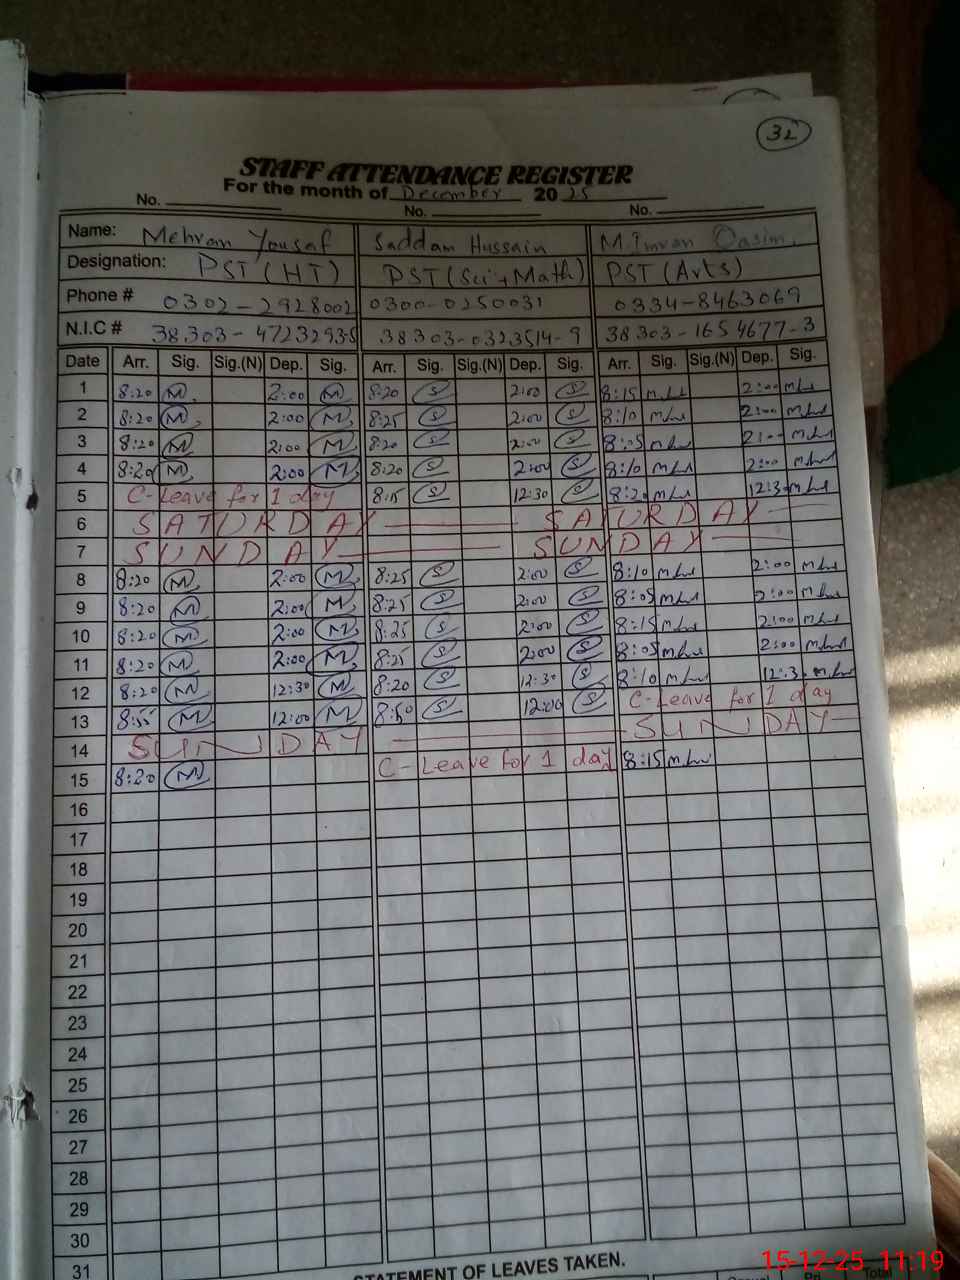 32
STAFF ATTENDANCE REGISTER
For the month of December 20 25
No. No. No.
Name: Mehran Yousaf Saddam Hussain M.Imran Qasim.
Designation: PST (HT) PST (Sci+Math) PST (Arts)
Phone # 0302-2928002 0300-0250031 0334-8463069
N.I.C # 38303-4723293-5 38303-0323514-9 38303-1654677-3
Date Arr. Sig. Sig.(N) Dep. Sig. Arr. Sig. Sig.(N) Dep. Sig. Arr. Sig. Sig.(N) Dep. Sig.
1 8:20 M 2:00 M 8:20 S 2:00 S 8:15 2:00
2 8:20 M 2:00 M 8:25 S 2:00 S 8:10 2:00
3 8:20 M 2:00 M 8:20 S 2:00 S 8:05 2:00
4 8:20 M 2:00 M 8:20 S 2:00 S 8:10 2:00
5 C-Leave for 1 day 8:15 S 12:30 S 8:20 12:30
6 SATURDAY SATURDAY
7 SUNDAY SUNDAY
8 8:20 M 2:00 M 8:25 S 2:00 S 8:10 2:00
9 8:20 M 2:00 M 8:25 S 2:00 S 8:05 2:00
10 8:20 M 2:00 M 8:25 S 2:00 S 8:15 2:00
11 8:20 M 2:00 M 8:25 S 2:00 S 8:05 2:00
12 8:20 M 12:30 M 8:20 S 12:30 S 8:10 12:30
13 8:55 M 12:00 M 8:50 S 12:00 S C-Leave for 1 day
14 SUNDAY SUNDAY
15 8:20 M C-Leave for 1 day 8:15
16
17
18
19
20
21
22
23
24
25
26
27
28
29
30
31
STATEMENT OF LEAVES TAKEN.
Total
15-12-25 11:19